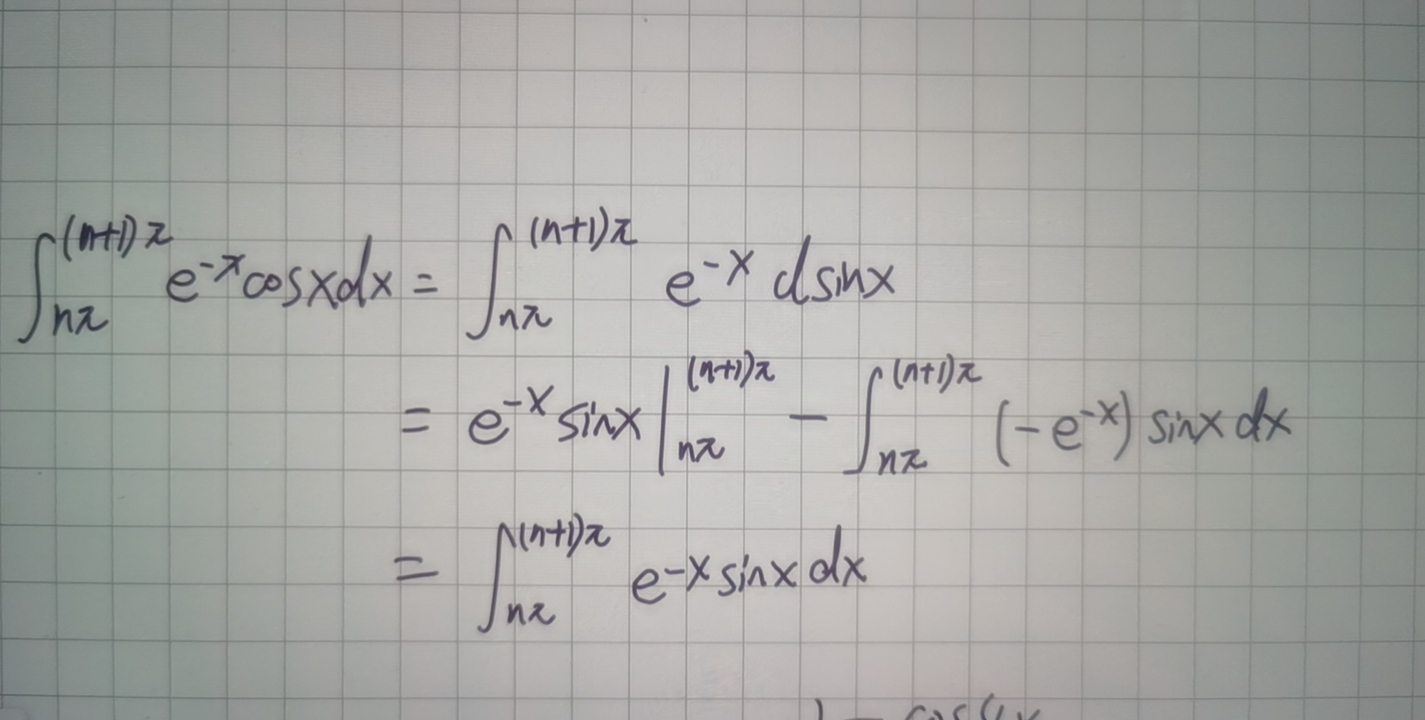 ∫_{nπ}^{(n+1)π} e^{-x} cosx dx = ∫_{nπ}^{(n+1)π} e^{-x} dsinx
= e^{-x} sinx |_{nπ}^{(n+1)π} - ∫_{nπ}^{(n+1)π} (-e^{-x}) sinx dx
= ∫_{nπ}^{(n+1)π} e^{-x} sinx dx